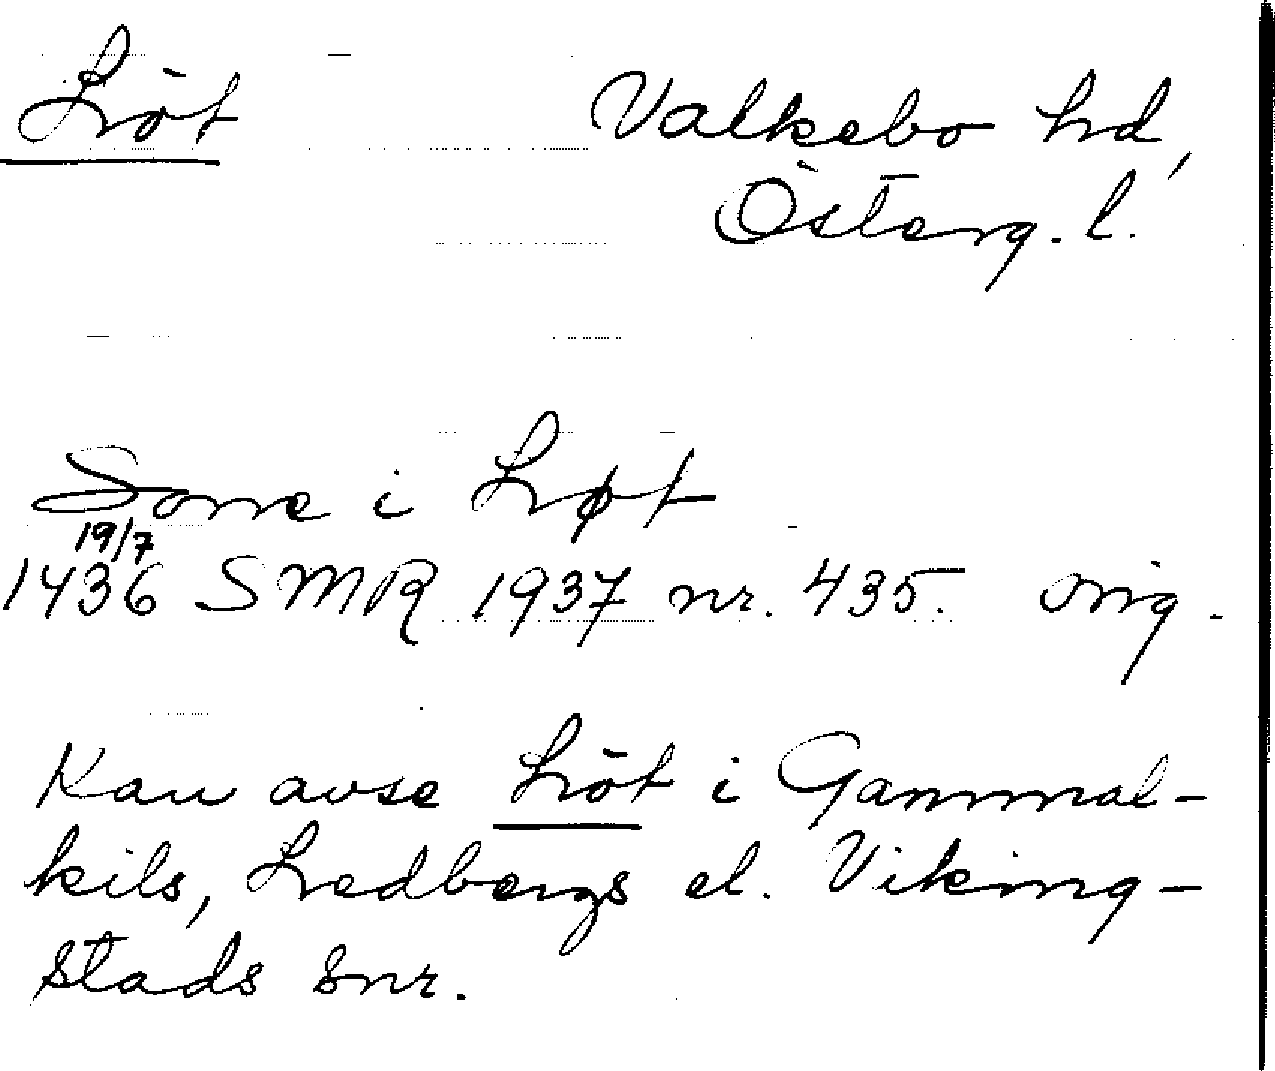 Löt
Valkebo hd,
Österg. l.
Sone i Løt
19/7
1436 SMR 1937 nr. 435. orig.
Kan avse Löt i Gammal-
kils, Ledbergs el. Viking-
stads snr.